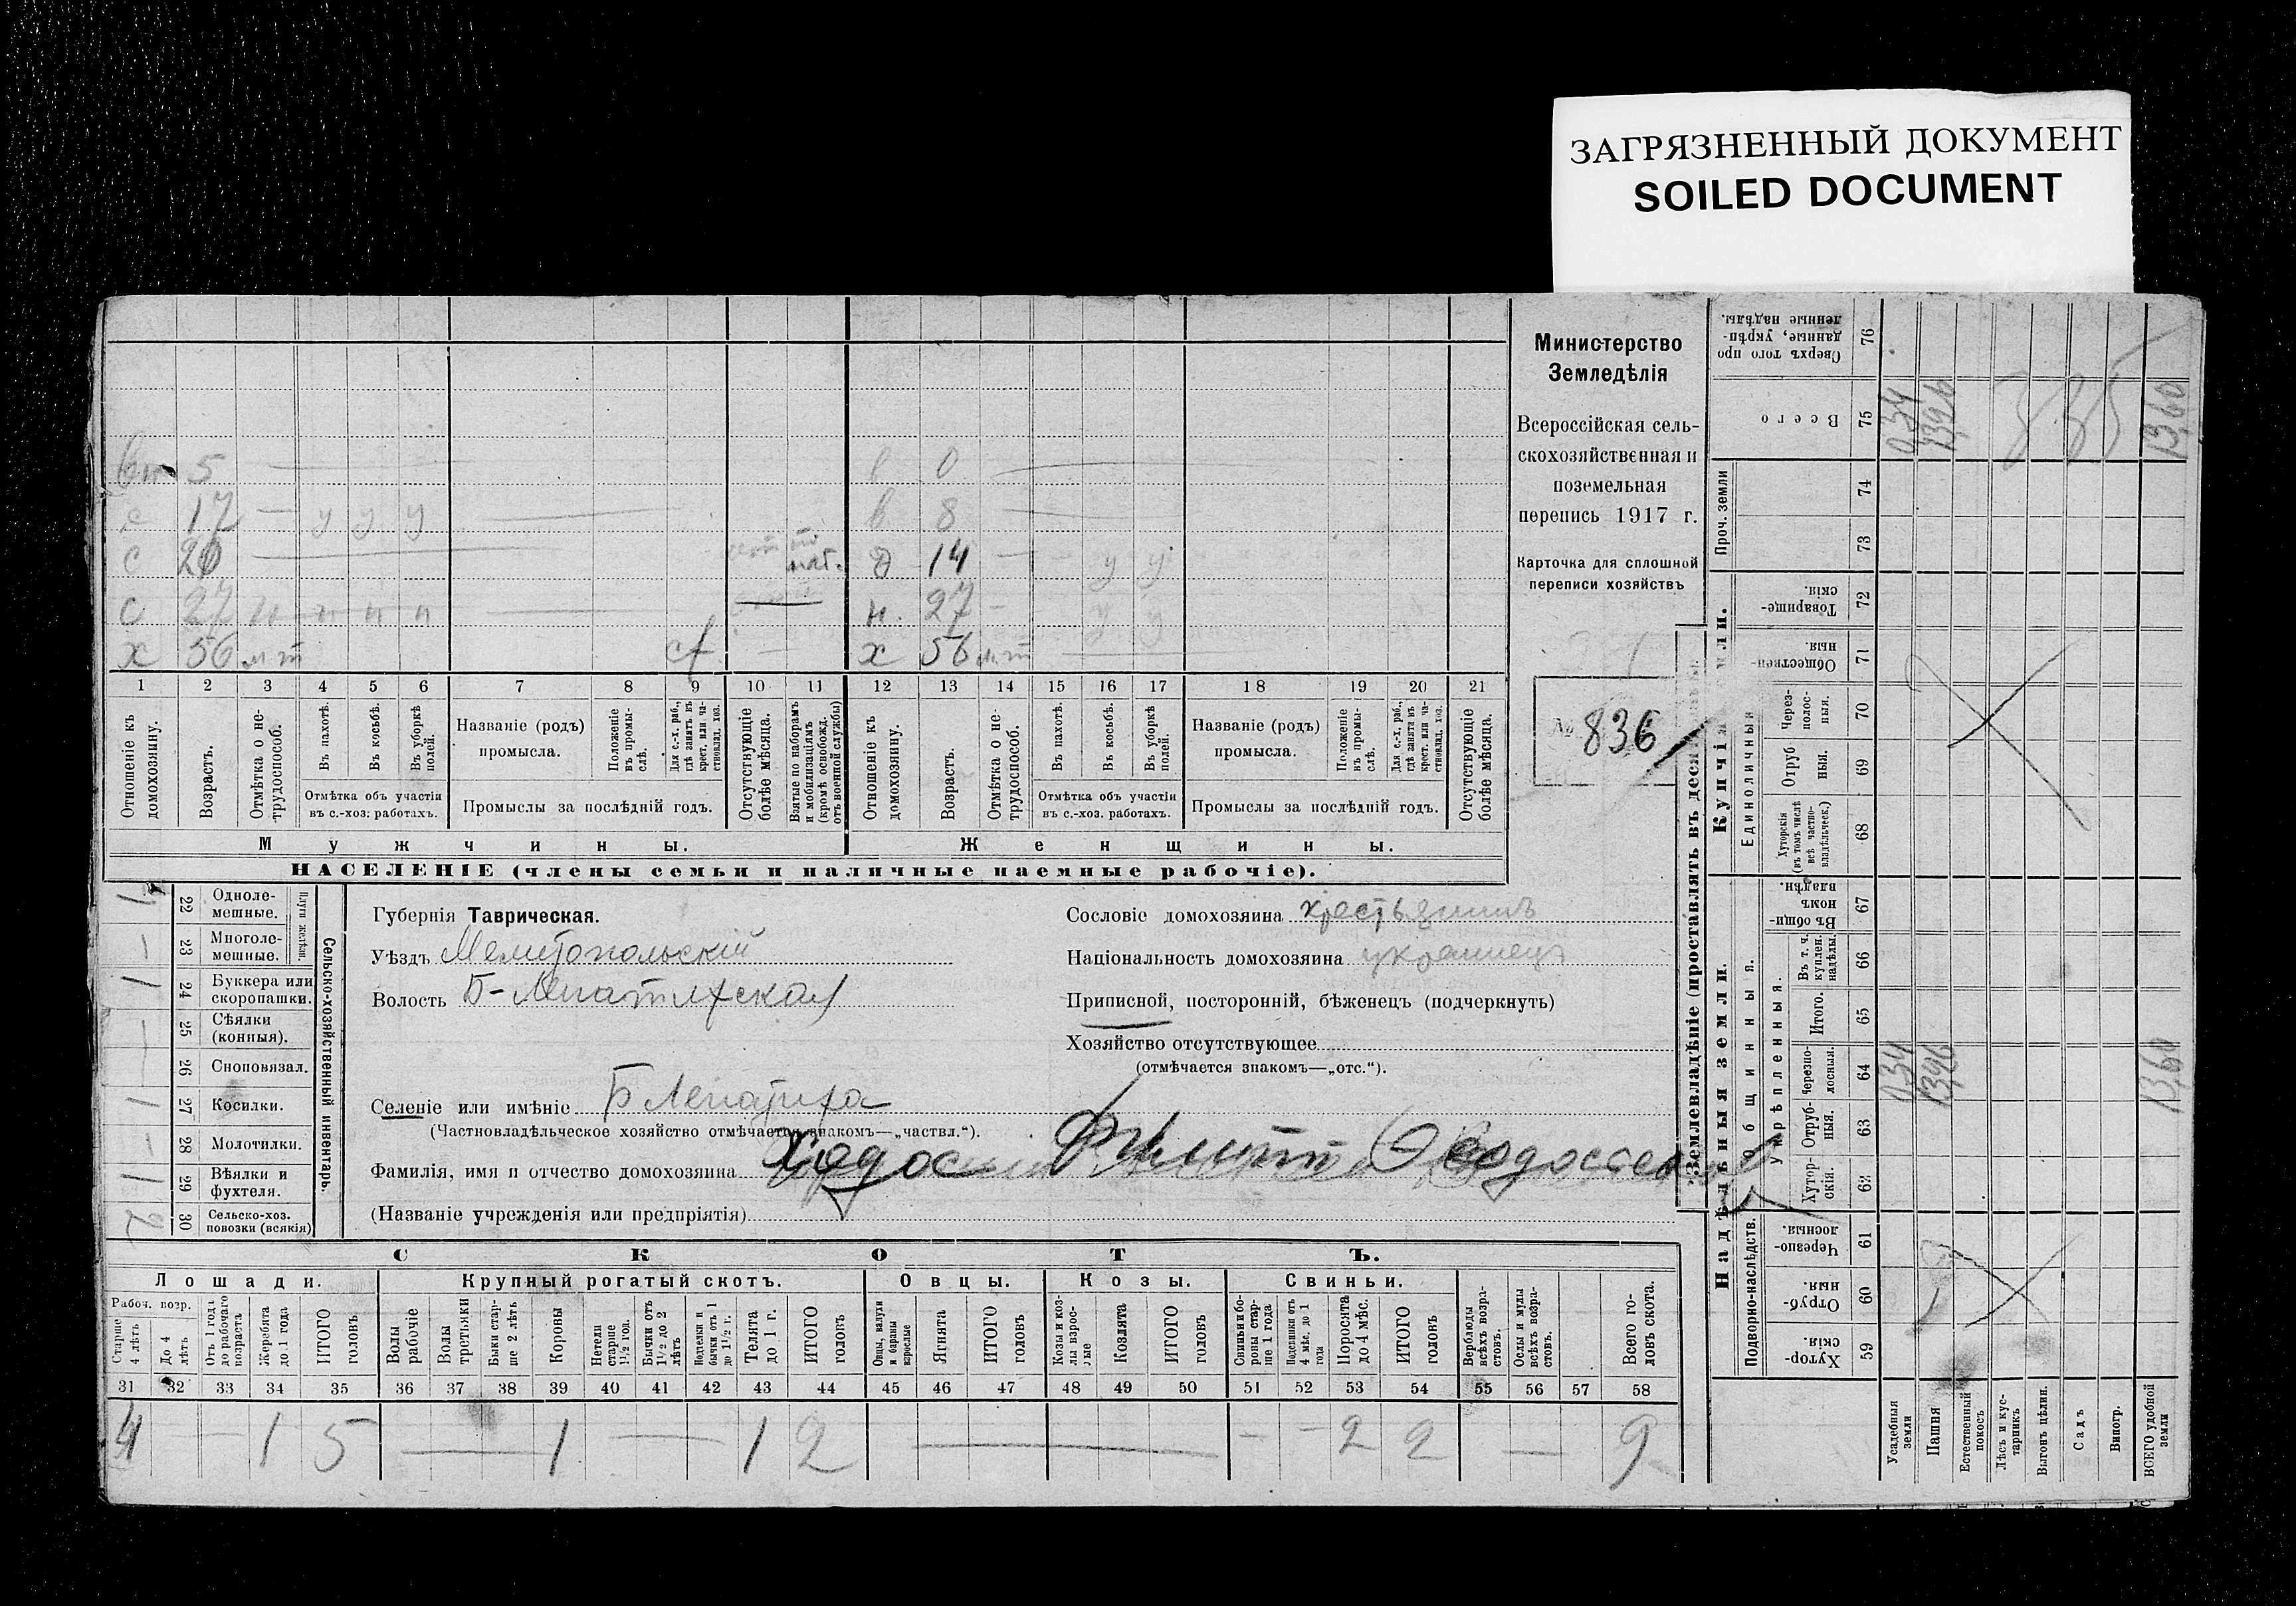 ЗАГРЯЗНЕННЫЙ ДОКУМЕНТ
SOILED DOCUMENT
Министерство
Земледѣлія
Всероссійская сель-
скохозяйственная и
поземельная
перепись 1917 г.
Карточка для сплошной
переписи хозяйствъ
№ 836
5 — в 0
с 17 — у у у — в 8
с 20 — 14 — у у
с 27 н н н н — н. 27 — у у
х 56 х 56
1 2 3 4 5 6 7 8 9 10 11 12 13 14 15 16 17 18 19 20 21
Отношеніе къ домохозяину.
Возрастъ.
Отмѣтка о не-трудоспособ.
Въ пахотѣ.
Въ косьбѣ.
Въ уборкѣ полей.
Отмѣтка объ участіи
въ с.-хоз. работахъ.
Названіе (родъ)
промысла.
Положеніе въ промы-слѣ.
Для с.-х. раб., гдѣ занятъ въ крест. или ча-стновлад. хоз.
Промыслы за послѣдній годъ.
Отсутствующіе болѣе мѣсяца.
Взятые по наборамъ и мобилизаціямъ (кромѣ освобожд. отъ военной службы)
Отношеніе къ домохозяину.
Возрастъ.
Отмѣтка о не-трудоспособ.
Въ пахотѣ.
Въ косьбѣ.
Въ уборкѣ полей.
Отмѣтка объ участіи
въ с.-хоз. работахъ.
Названіе (родъ)
промысла.
Положеніе въ промы-слѣ.
Для с.-х. раб., гдѣ занята въ крест. или ча-стновлад. хоз.
Промыслы за послѣдній годъ.
Отсутствующіе болѣе мѣсяца.
Мужчины. Женщины.
НАСЕЛЕНІЕ (члены семьи и наличные наемные рабочіе).
Сельско-хозяйственный инвентарь.
Плуги желѣзн.
22 Одноле-мешные.
— 23 Многоле-мешные.
1 24 Буккера или скоропашки.
— 25 Сѣялки (конныя).
— 26 Сноповязал.
1 27 Косилки.
— 28 Молотилки.
1 29 Вѣялки и фухтеля.
2 30 Сельско-хоз. повозки (всякія)
Губернія Таврическая.
Уѣздъ Мелитопольскій
Волость Б-Лепатихская
Селеніе или имѣніе Б Лепатиха
(Частновладѣльческое хозяйство отмѣчается знакомъ—„частвл.“).
Фамилія, имя и отчество домохозяина Ходос Филипп
(Названіе учрежденія или предпріятія)
Сословіе домохозяина крестьянинъ
Національность домохозяина украинецъ
Приписной, посторонній, бѣженецъ (подчеркнуть)
Хозяйство отсутствующее
(отмѣчается знакомъ—„отс.“).
СКОТЪ.
Лошади. Крупный рогатый скотъ. Овцы. Козы. Свиньи.
Рабоч. возр.
Старше 4 лѣтъ
До 4 лѣтъ
Отъ 1 года до рабочаго возраста
Жеребята до 1 года
ИТОГО головъ
Волы рабочіе
Волы третьяки
Быки стар-ше 2 лѣтъ
Коровы
Нетели старше 1½ год.
Бычки отъ 1½ до 2 лѣтъ
Телята до 1 г.
ИТОГО головъ
Овцы, валухи и бараны взрослые
Ягнята
ИТОГО головъ
Козы и коз-лы взрос-лые
Козлята
ИТОГО головъ
Свиньи и бо-ровы стар-ше 1 года
Подсвинки отъ 4 мѣс. до 1 года
Поросята до 4 мѣс.
ИТОГО головъ
Верблюды всѣхъ возра-стовъ.
Ослы и мулы всѣхъ возра-стовъ.
Всего го-ловъ скота.
31 32 33 34 35 36 37 38 39 40 41 42 43 44 45 46 47 48 49 50 51 52 53 54 55 56 57 58
4 — 1 5 — 1 — 1 2 — — — 2 2 — 9
Надѣльныя земли.
Подворно-наслѣдств.
Хутор-скія. 59
Отруб-ныя. 60
Черезпо-лосныя. 61
Укрѣпленныя.
Хутор-скія. 62
Отруб-ныя. 63
Черезпо-лосныя. 64
Итого. 65
Въ т. ч. куплен. надѣлы. 66
Въ общи-номъ владѣн. 67
Единоличныя
Хуторскія (въ томъ числѣ всѣ частно-владѣльческ.) 68
Отруб ныя. 69
Через-полос-ныя. 70
Обществен-ныя. 71
Товарище-скія. 72
Проч. земли
73
74
Всего 75
Сверхъ того про данные, укрѣп-ленные надѣлы. 76
Усадебныя земли 0,34 0,34
Пашня 13,26 13,26
Естественный покосъ
Лѣсъ и кус-тарникъ
Выгонъ цѣлин.
Садъ
Виногр.
ВСЕГО удобной земли 13,60 13,60